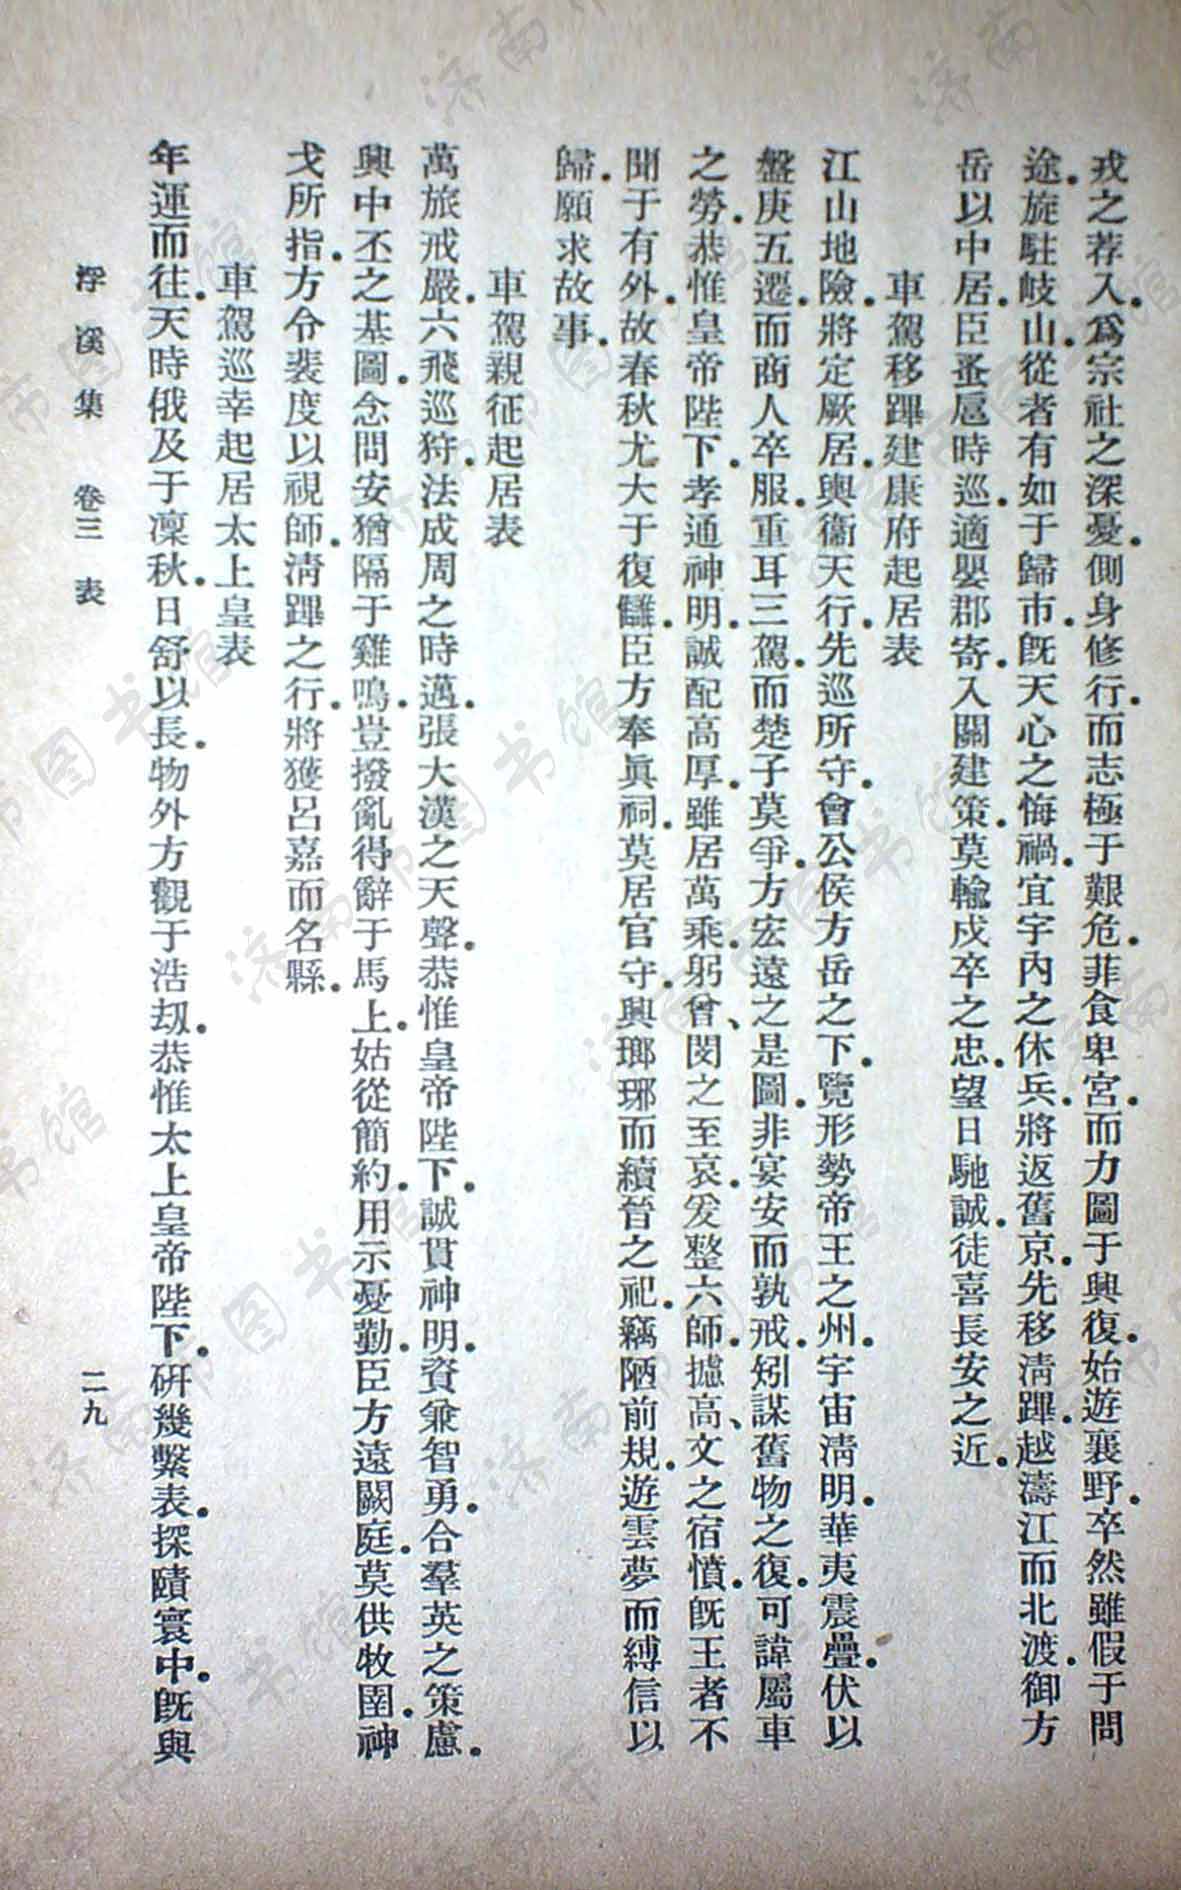 戎之荐入.爲宗社之深憂.側身修行.而志極于艱危.菲食卑宮.而力圖于興復.始遊襄野.卒然雖假于問
途.旋駐岐山.從者有如于歸市.旣天心之悔禍.宜宇內之休兵.將返舊京.先移淸蹕.越濤江而北渡.御方
岳以中居.臣蚤扈時巡.適嬰郡寄.入關建策.莫輸戍卒之忠.望日馳誠.徒喜長安之近.
車駕移蹕建康府起居表
江山地險.將定厥居.輿衞天行.先巡所守.會公侯方岳之下.覽形勢帝王之州.宇宙淸明.華夷震疊.伏以
盤庚五遷.而商人卒服.重耳三駕.而楚子莫爭.方宏遠之是圖.非宴安而孰戒.矧謀舊物之復.可諱屬車
之勞.恭惟皇帝陛下.孝通神明.誠配高厚.雖居萬乘.躬曾、閔之至哀.爰整六師.攄高、文之宿憤.旣王者不
聞于有外.故春秋尤大于復讎.臣方奉眞祠.莫居官守.興瑯琊而續晉之祀.竊陋前規.遊雲夢而縛信以
歸.願求故事.
車駕親征起居表
萬旅戒嚴.六飛巡狩.法成周之時邁.張大漢之天聲.恭惟皇帝陛下.誠貫神明.資兼智勇.合羣英之策慮.
興中丕之基圖.念問安猶隔于雞鳴.豈撥亂得辭于馬上.姑從簡約.用示憂勤.臣方遠闕庭.莫供牧圉.神
戈所指.方令裴度以視師.淸蹕之行.將獲呂嘉而名縣.
車駕巡幸起居太上皇表
年運而往.天時俄及于凜秋.日舒以長.物外方觀于浩刼.恭惟太上皇帝陛下.硏幾繫表.探賾寰中.旣與
浮溪集 卷三 表
二九
济南市图书馆